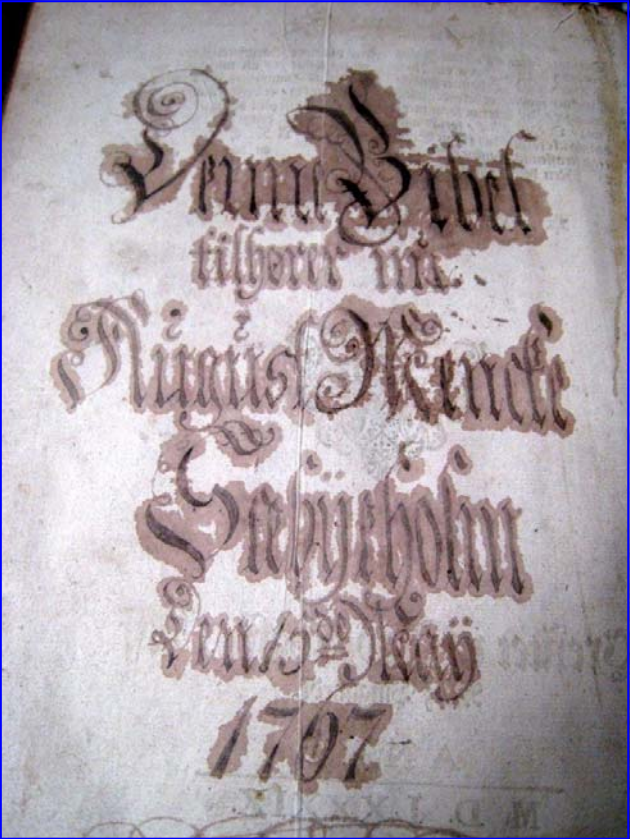 Denne Bibel
tilhører mig
August Mencke
Sæbÿeholm
Den 13de Maÿ
1797